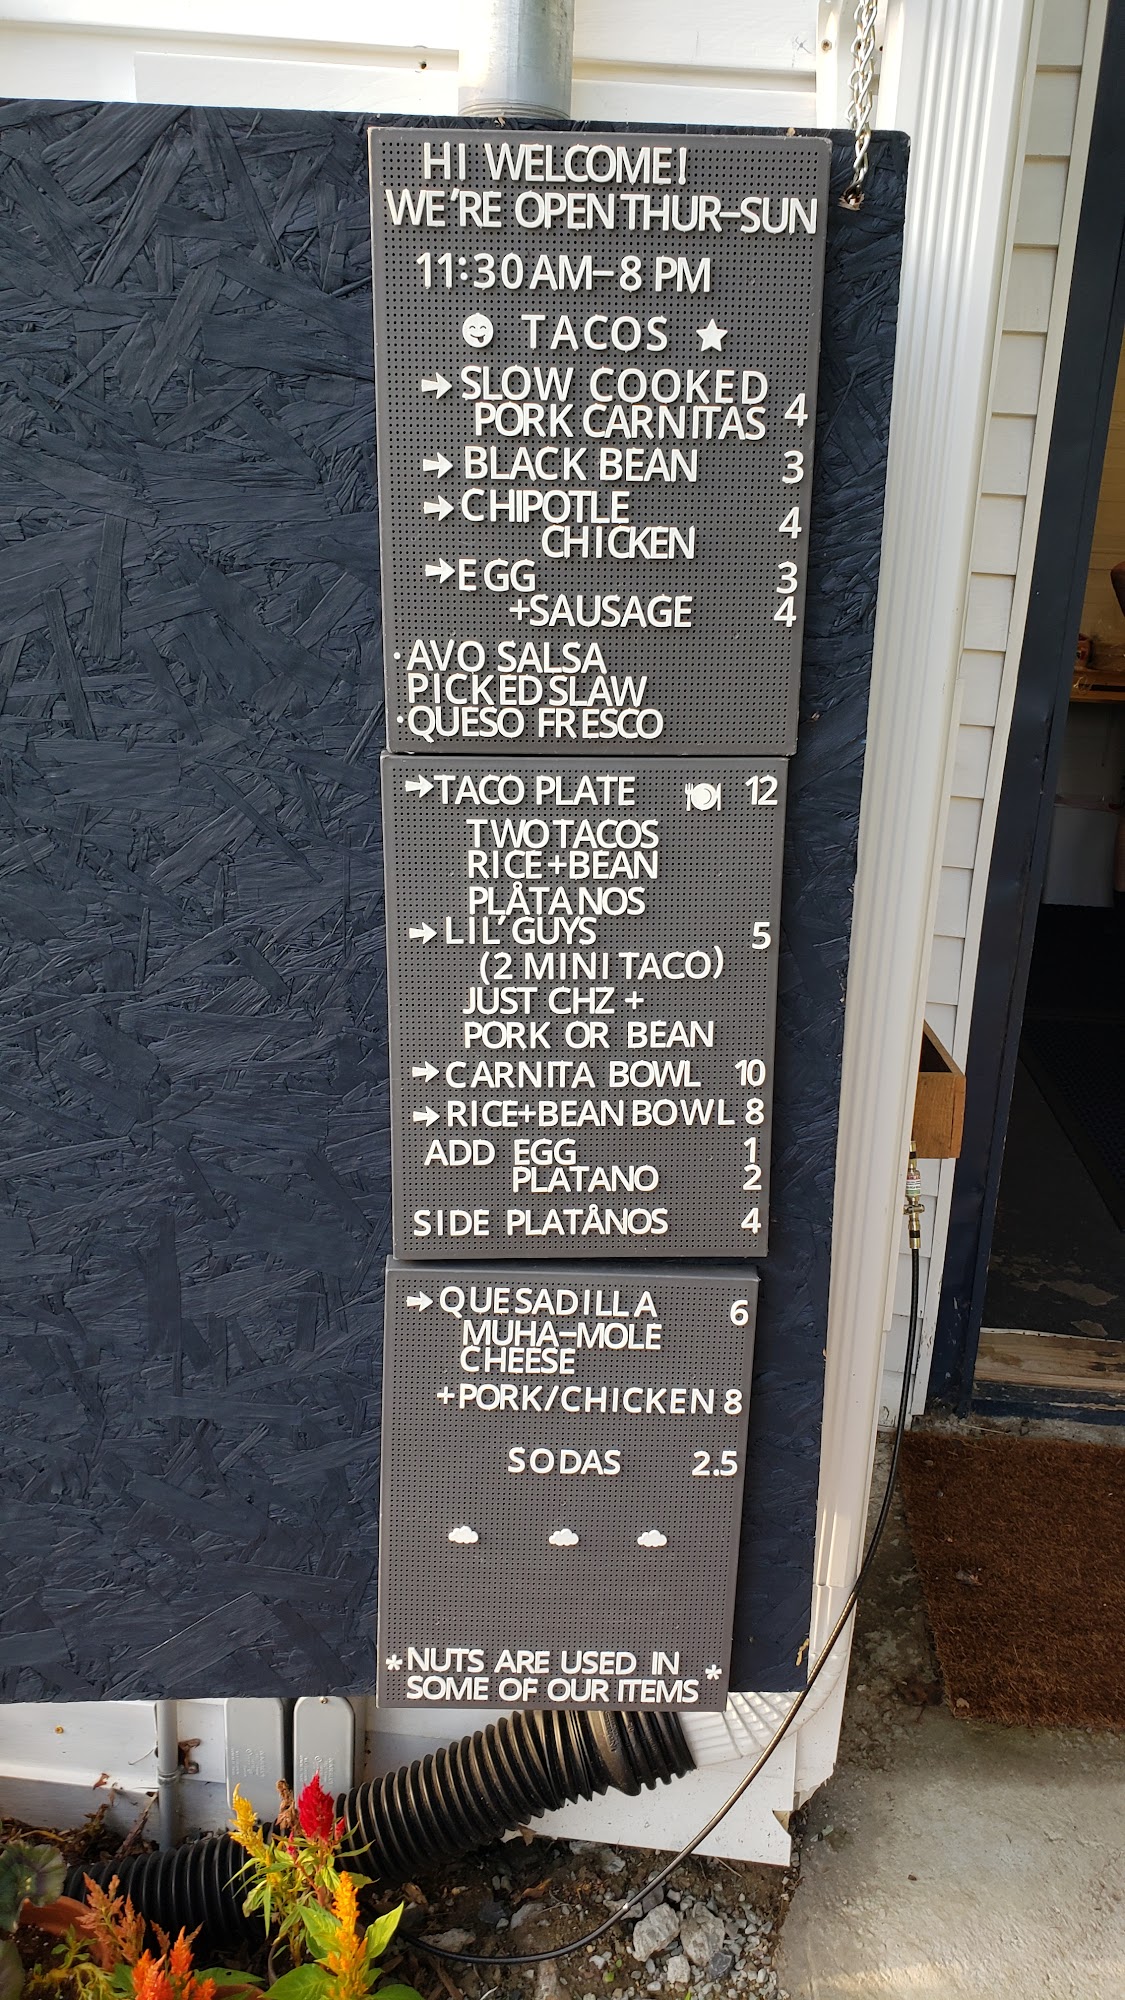 HI WELCOME!
WE'RE OPEN THUR-SUN
11:30 AM-8 PM
TACOS
SLOW COOKED
PORK CARNITAS 4
BLACK BEAN 3
CHIPOTLE
CHICKEN 4
EGG 3
+SAUSAGE 4
·AVO SALSA
PICKED SLAW
·QUESO FRESCO
TACO PLATE 12
TWO TACOS
RICE+BEAN
PLÅTANOS
LIL' GUYS 5
(2 MINI TACO)
JUST CHZ +
PORK OR BEAN
CARNITA BOWL 10
RICE+BEAN BOWL 8
ADD EGG 1
PLATANO 2
SIDE PLATÅNOS 4
QUESADILLA 6
MUHA-MOLE
CHEESE
+PORK/CHICKEN 8
SODAS 2.5
*NUTS ARE USED IN *
SOME OF OUR ITEMS